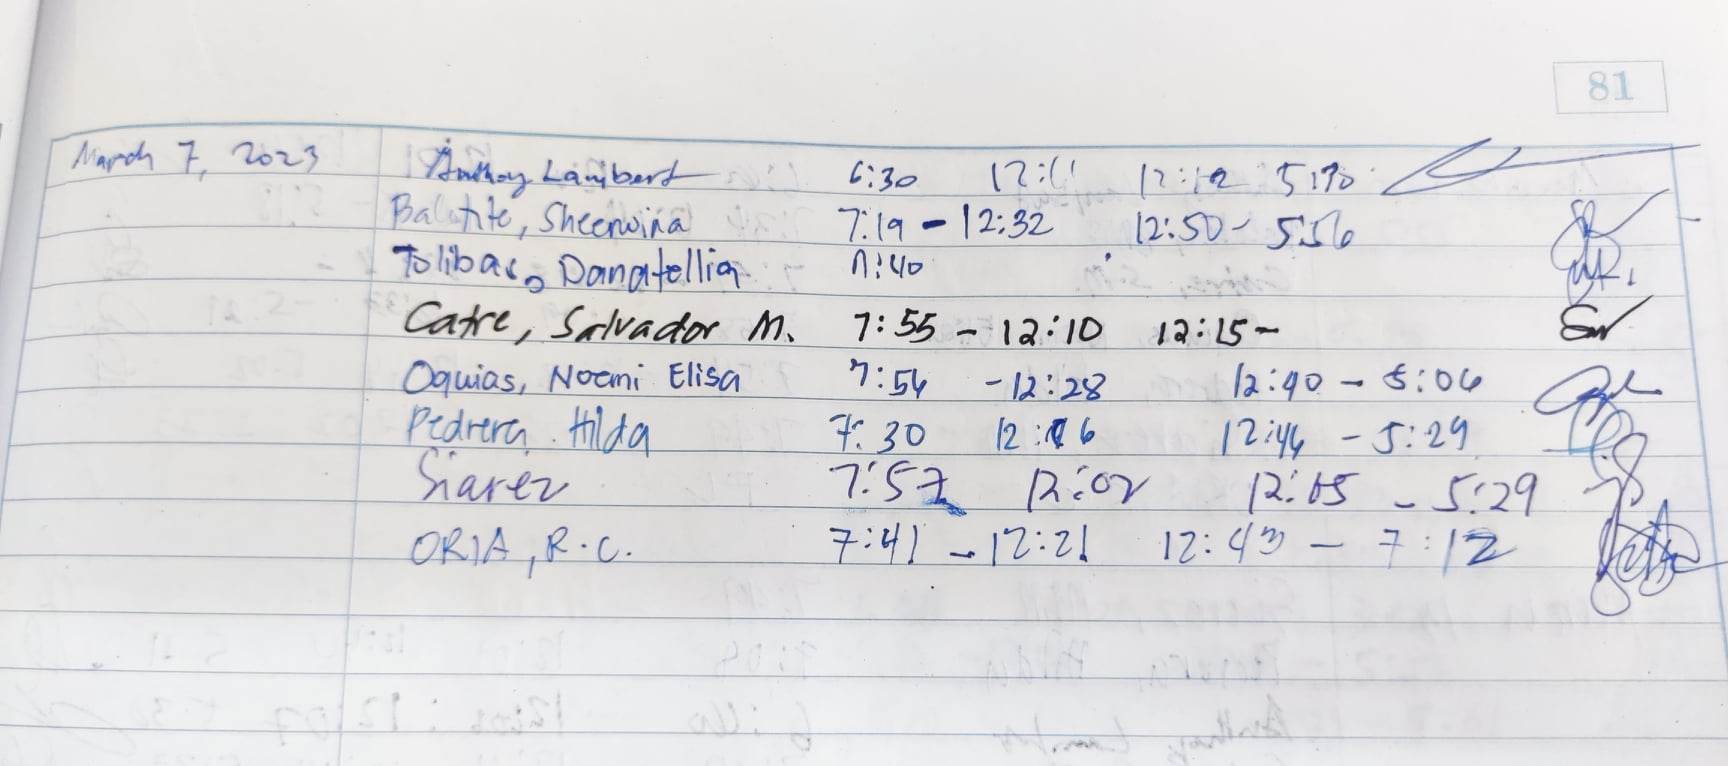 81
March 7, 2023 Anthony Lambert 6:30 12:11 12:12 5:30
Balatite, Sheenwina 7:19 - 12:32 12:50 - 5:56
Tolibas, Danatellia 7:40
Catre, Salvador M. 7:55 - 12:10 12:15 -
Oquias, Noemi Elisa 7:54 - 12:28 12:40 - 5:06
Pedrera, Hilda 7:30 12:16 12:44 - 5:29
Siarez 7:57 12:02 12:05 - 5:29
ORIA, R.C. 7:41 - 12:21 12:43 - 7:12